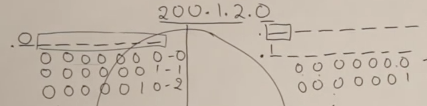 200.1.2.0
.0 _ _ _ _ _ _ _
0 0 0 0 0 0 0-0
0 0 0 0 0 0 1-1
0 0 0 0 0 1 0-2
.1 _ _ _ _ _ _ _
0 0 0 0 0 0 0
0 0 0 0 0 0 1